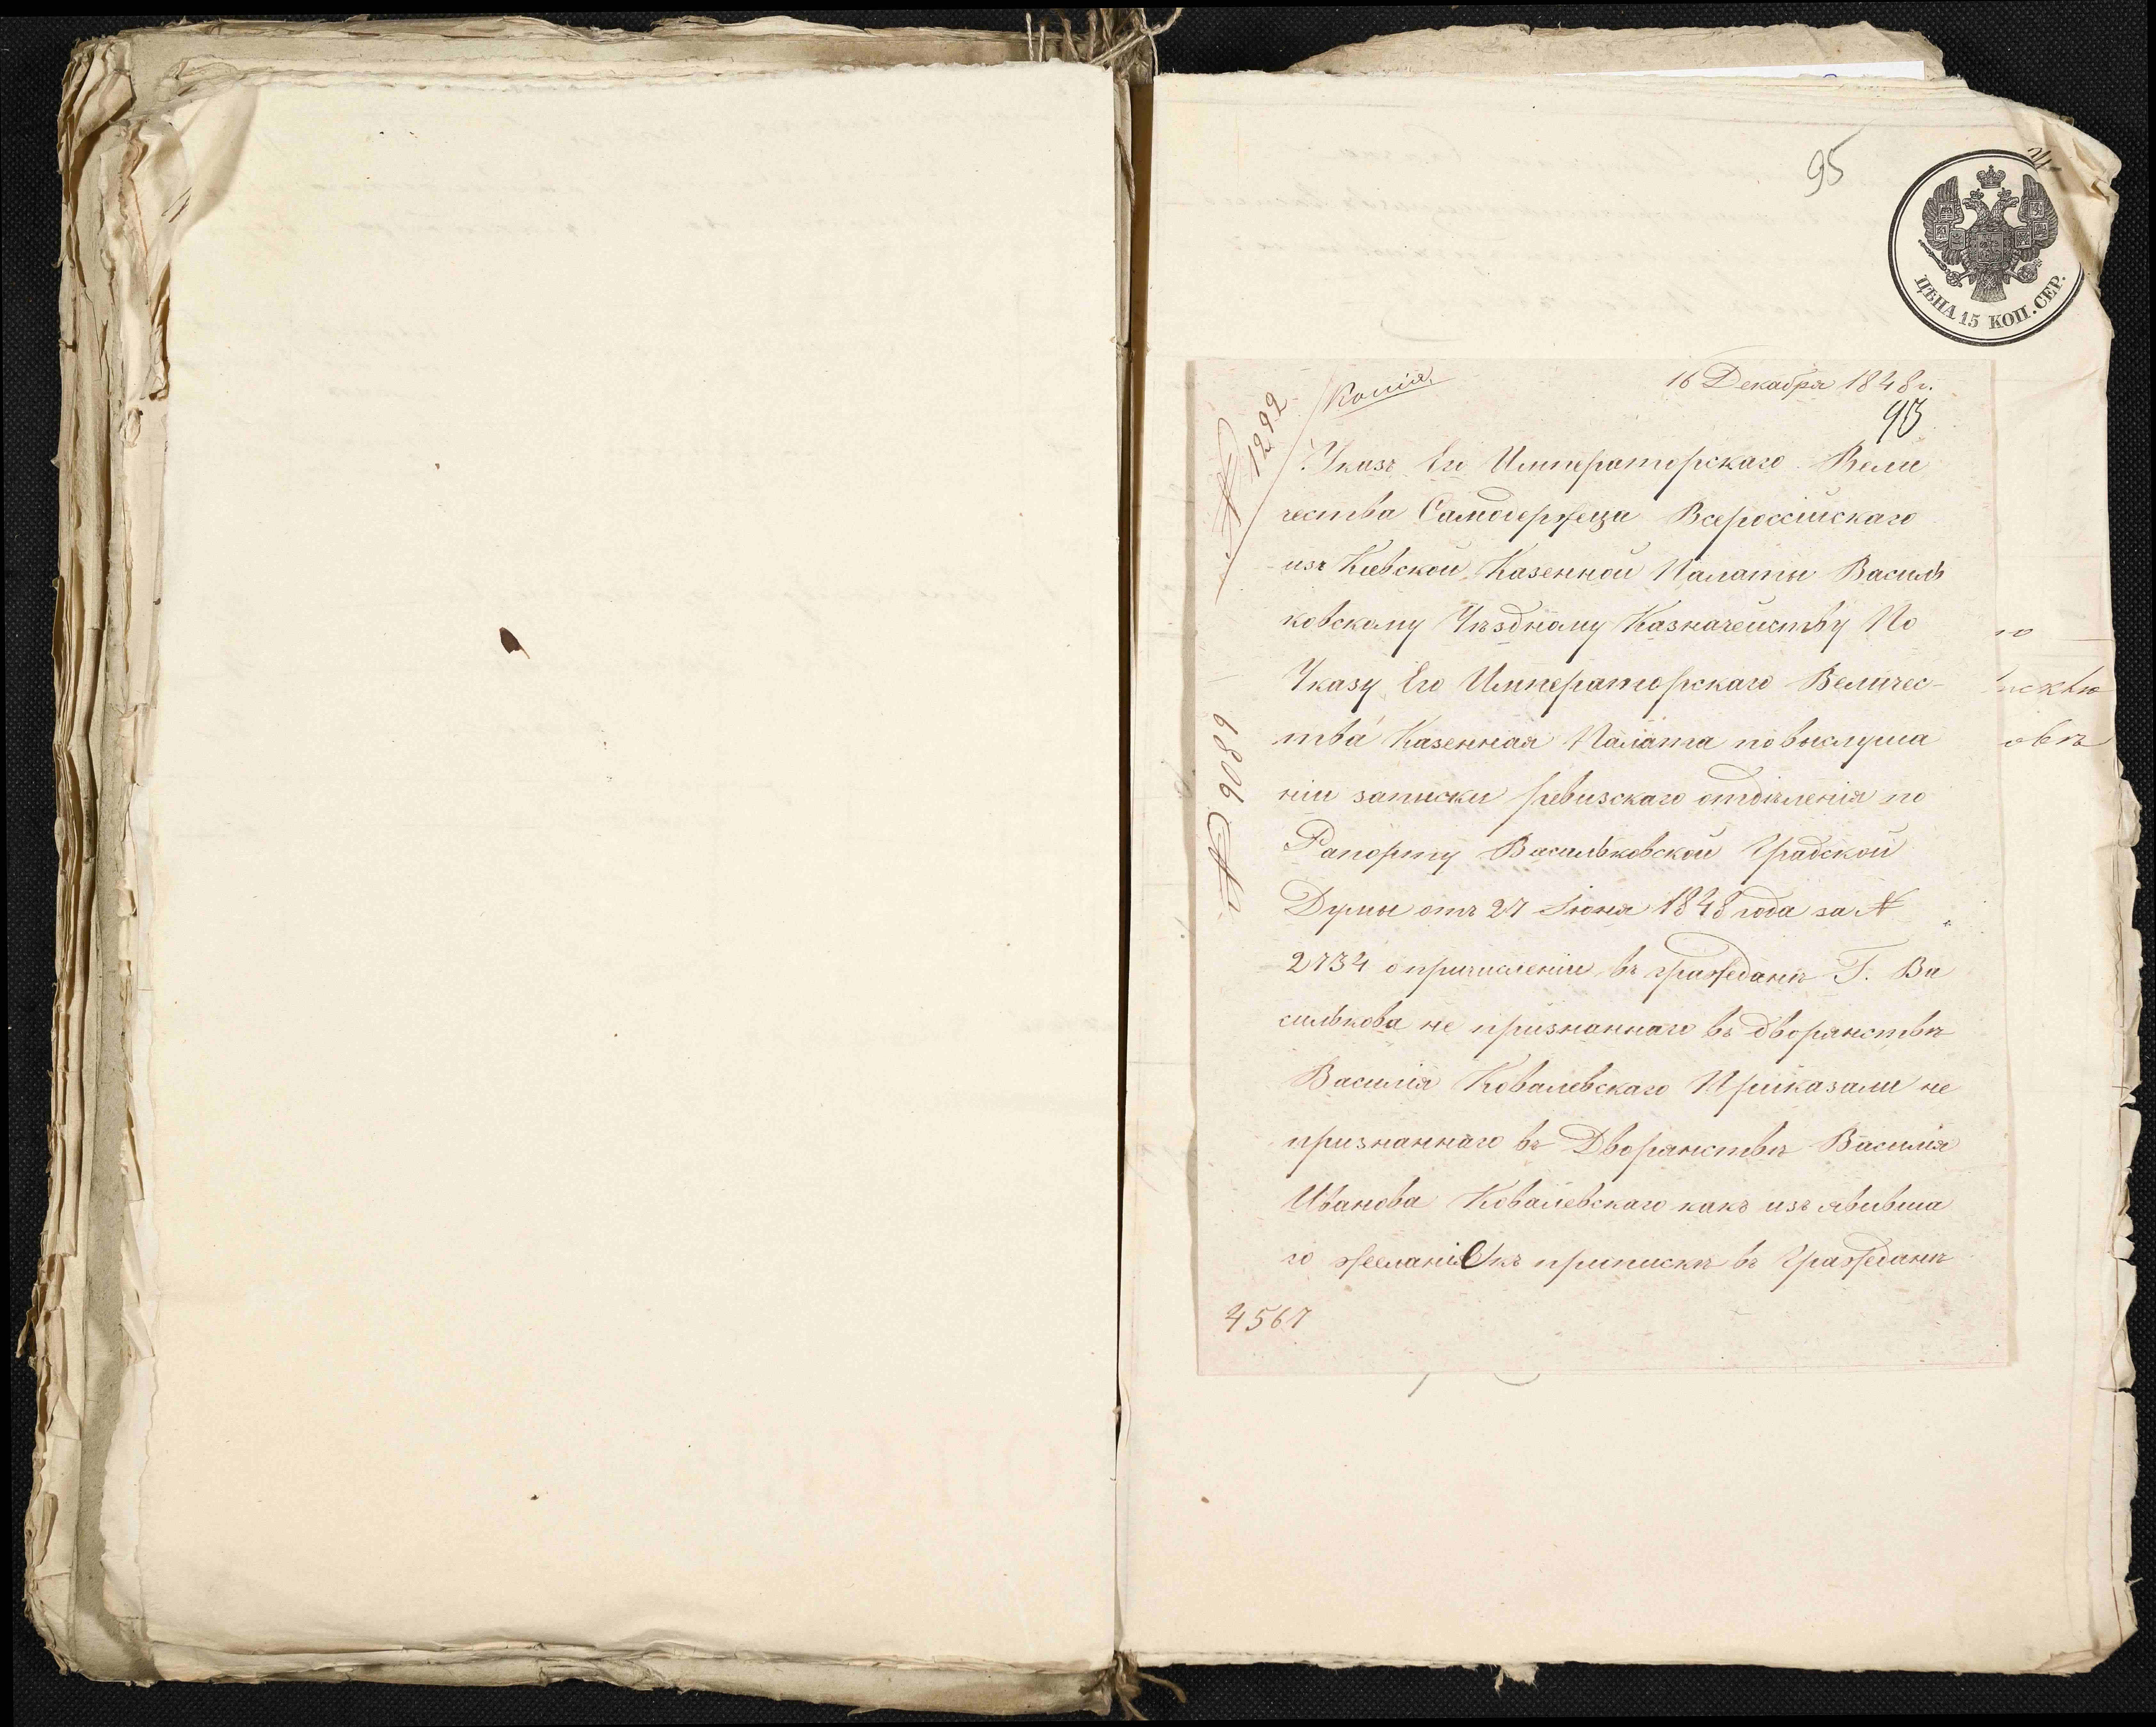 95
ЦѢНА 15 КОП. СЕР.
Копія
16 Декабря 1848 г.
93
№ 1292
Указъ Его Императорскаго Вели
чества Самодержеца Всероссійскаго
изъ Кіевской Казенной Палаты Василь
ковскому Уѣздному Казначейству По
Указу Его Императорскаго Величес-
тва Казенная Палата по выслуша
ніи записки ревизскаго отдѣленія по
Рапорту Васильковской Градской
Думы отъ 27 Іюня 1848 года за №
2734 о причисленіи въ гражданѣ Г. Ва
силькова не признаннаго въ дворянствѣ
Василія Ковалевскаго Приказали не
признаннаго въ Дворянствѣ Василія
Иванова Ковалевскаго какъ изъявивша
го желаніе къ припискѣ въ Гражданѣ
№ 9089
4567